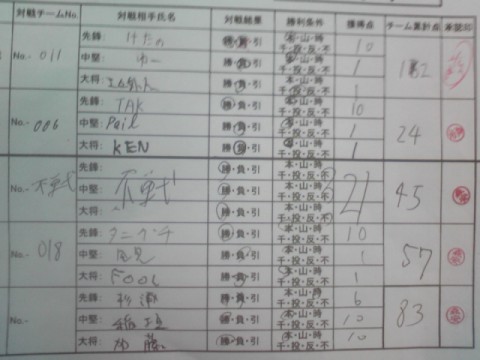 対戦チームNo. 対戦相手氏名 対戦結果 勝利条件 獲得点 チーム累計点 承認印
No.- 011 先鋒: けたの 勝・負・引 本・山・時 千・投・反・不 10
中堅: ゆー 勝・負・引 本・山・時 千・投・反・不 1 12
大将: 勝・負・引 本・山・時 千・投・反・不 1
No.- 006 先鋒: TAK 勝・負・引 本・山・時 千・投・反・不 10
中堅: Pail 勝・負・引 本・山・時 千・投・反・不 1 24
大将: KEN 勝・負・引 本・山・時 千・投・反・不 1
No.- 不戦 先鋒: 勝・負・引 本・山・時 千・投・反・不
中堅: 不戦 勝・負・引 本・山・時 千・投・反・不 21 45
大将: 勝・負・引 本・山・時 千・投・反・不
No.- 018 先鋒: タニグチ 勝・負・引 本・山・時 千・投・反・不 10
中堅: 勝・負・引 本・山・時 千・投・反・不 1 57
大将: FOOL 勝・負・引 本・山・時 千・投・反・不 1
No.- 先鋒: 勝・負・引 本・山・時 千・投・反・不 6
中堅: 勝・負・引 本・山・時 千・投・反・不 10 83
大将: 加藤 勝・負・引 本・山・時 千・投・反・不 10